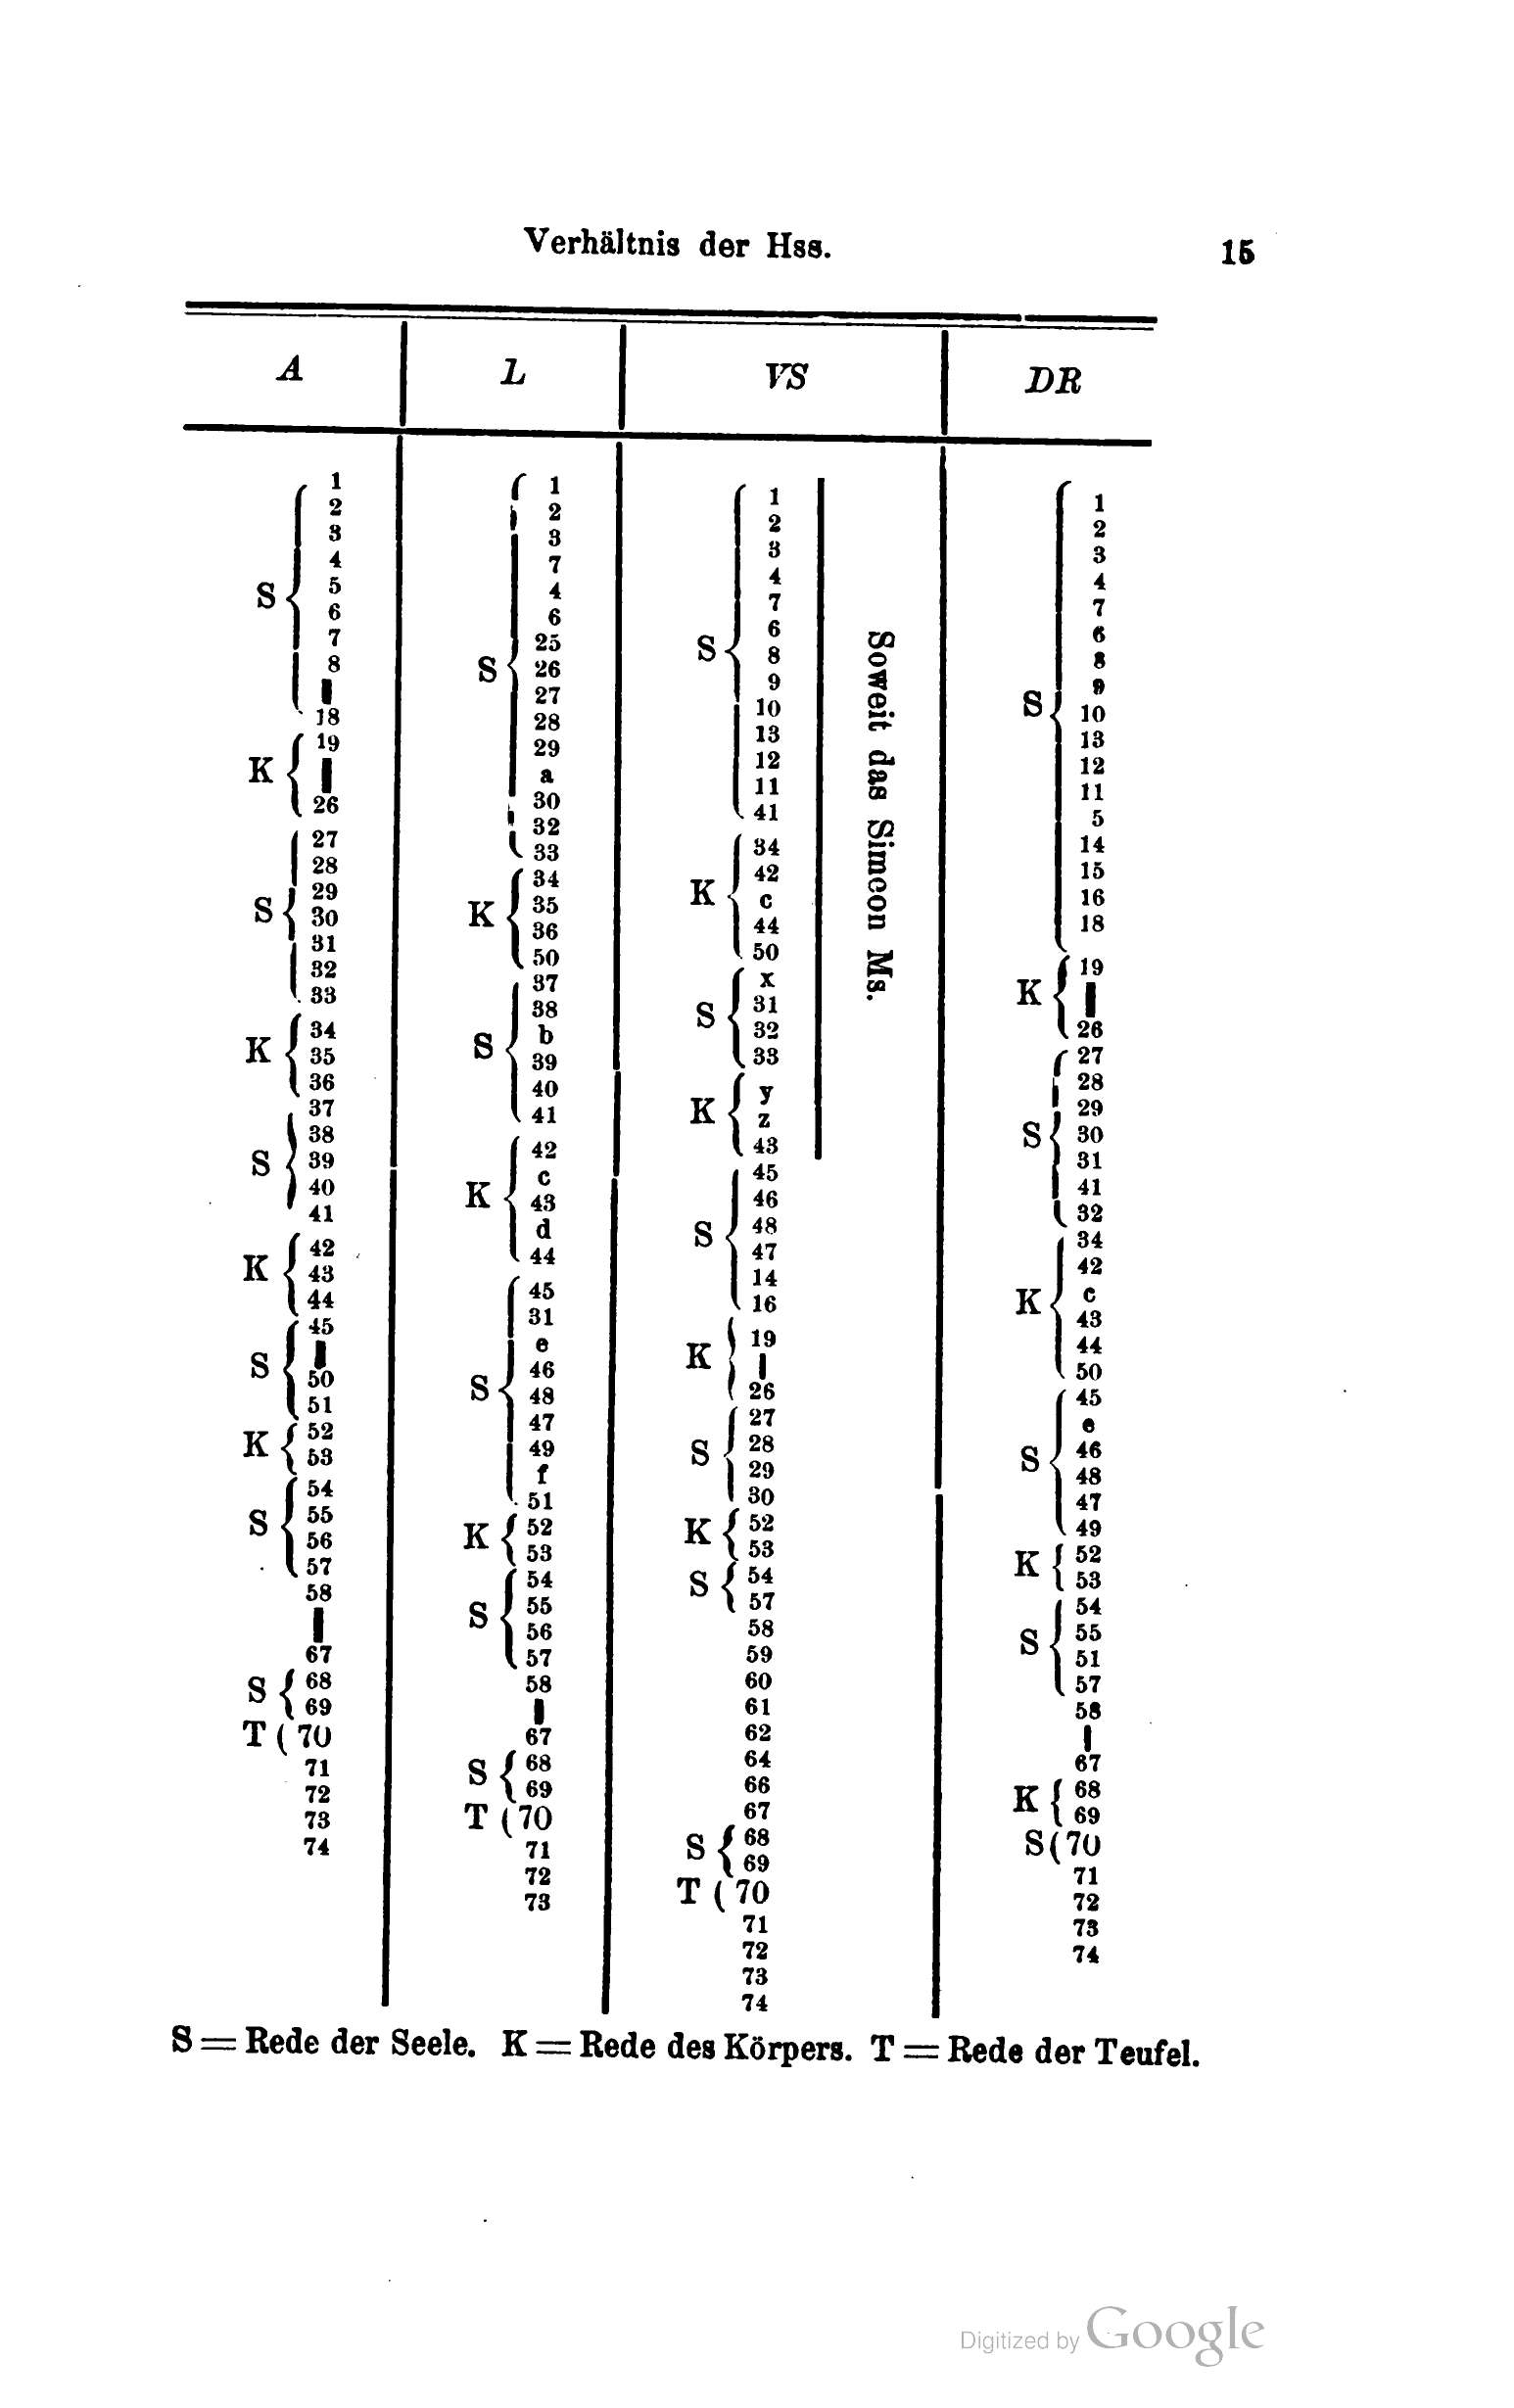 Verhältnis der Hss.
15
A
S
1
2
3
4
5
6
7
8
18
K
19
26
S
27
28
29
30
31
32
33
K
34
35
36
S
37
38
39
40
41
K
42
43
44
S
45
50
51
K
52
53
S
54
55
56
57
58
67
S
68
69
T ( 70
71
72
73
74
L
S
1
2
3
7
4
6
25
26
27
28
29
a
30
32
33
K
34
35
36
50
S
37
38
b
39
40
41
K
42
c
43
d
44
S
45
31
e
46
48
47
49
f
51
K
52
53
S
54
55
56
57
58
67
S
68
69
T ( 70
71
72
73
VS
S
1
2
3
4
7
6
8
9
10
13
12
11
41
K
34
42
c
44
50
S
x
31
32
33
K
y
z
43
Soweit das Simeon Ms.
S
45
46
48
47
14
16
K
19
26
S
27
28
29
30
K
52
53
S
54
57
58
59
60
61
62
64
66
67
S
68
69
T ( 70
71
72
73
74
DR
S
1
2
3
4
7
6
8
9
10
13
12
11
5
14
15
16
18
K
19
26
S
27
28
29
30
31
41
32
K
34
42
c
43
44
50
S
45
e
46
48
47
49
K
52
53
S
54
55
51
57
58
67
K
68
69
S ( 70
71
72
73
74
S = Rede der Seele. K = Rede des Körpers. T = Rede der Teufel.
Digitized by Google